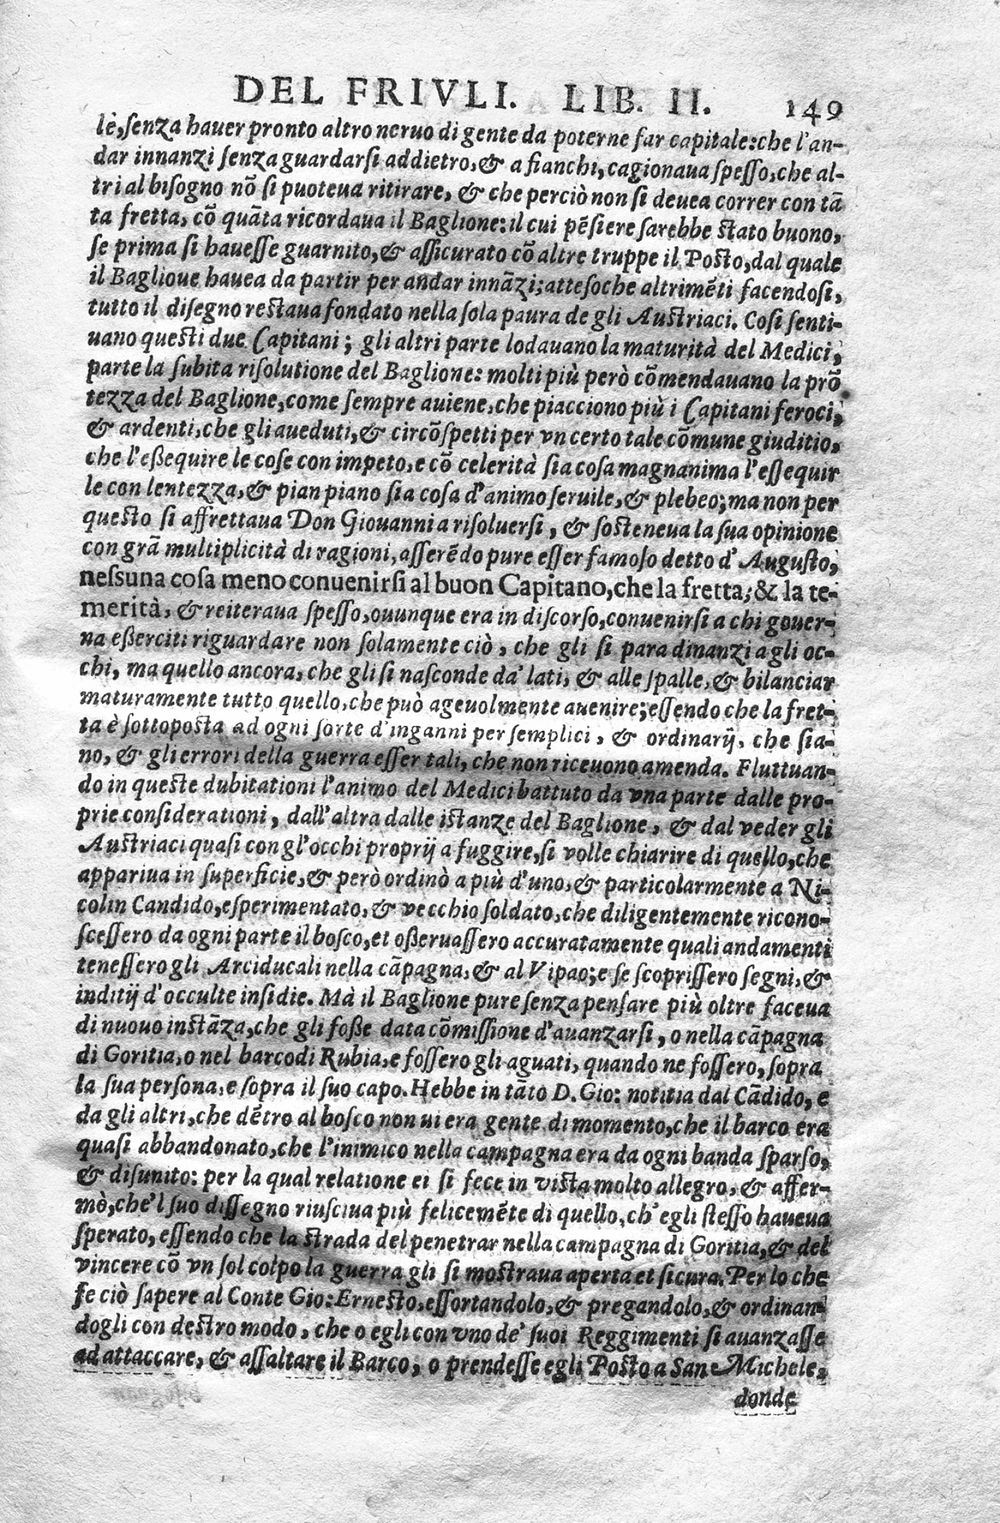 DEL FRIVLI. LIB. II. 149
le, senza hauer pronto altro neruo di gente da poterne far capitale: che l'an-
dar innanzi senza guardarsi addietro, & a fianchi, cagionaua spesso, che al-
tri al bisogno nõ si puoteua ritirare, & che perciò non si deuea correr con tã
ta fretta, cõ quãta ricordaua il Baglione: il cui pẽsiere sarebbe stato buono,
se prima si hauesse guarnito, & assicurato cõ altre truppe il Posto, dal quale
il Baglioue hauea da partir per andar innãzi; attesoche altrimẽti facendosi,
tutto il disegno restaua fondato nella sola paura de gli Austriaci. Cosi senti-
uano questi due Capitani; gli altri parte lodauano la maturità del Medici,
parte la subita risolutione del Baglione: molti più però cõmendauano la prõ
tezza del Baglione, come sempre auiene, che piacciono più i Capitani feroci,
& ardenti, che gli aueduti, & circõspetti per vn certo tale cõmune giuditio,
che l'eßequire le cose con impeto, e cõ celerità sia cosa magnanima l'essequir
le con lentezza, & pian piano sia cosa d'animo seruile, & plebeo; ma non per
questo si affrettaua Don Giouanni a risoluersi, & sosteneua la sua opinione
con grã multiplicità di ragioni, asserẽdo pure esser famoso detto d'Augusto,
nessuna cosa meno conuenirsi al buon Capitano, che la fretta; & la te-
merità, & reiteraua spesso, ouunque era in discorso, conuenirsi a chi gouer-
na eßerciti riguardare non solamente ciò, che gli si para dinanzi a gli oc-
chi, ma quello ancora, che gli si nasconde da' lati, & alle spalle, & bilanciar
maturamente tutto quello, che può ageuolmente auenire; essendo che la fret-
ta è sottoposta ad ogni sorte d'inganni per semplici, & ordinarij, che sia-
no, & gli errori della guerra esser tali, che non riceuono amenda. Fluttuan-
do in queste dubitationi l'animo del Medici battuto da vna parte dalle pro-
prie considerationi, dall'altra dalle istanze del Baglione, & dal veder gli
Austriaci quasi con gl'occhi proprij a fuggire, si volle chiarire di quello, che
appariua in superficie, & però ordinò a più d'uno, & particolarmente a Ni-
colin Candido, esperimentato, & vecchio soldato, che diligentemente ricono-
scessero da ogni parte il bosco, et oßeruassero accuratamente quali andamenti
tenessero gli Arciducali nella cãpagna, & al Vipao; e se scoprissero segni, &
inditij d'occulte insidie. Mà il Baglione pure senza pensare più oltre faceua
di nuouo instãza, che gli foße data cõmissione d'auanzarsi, o nella cãpagna
di Goritia, o nel barco di Rubia, e fossero gli aguati, quando ne fossero, sopra
la sua persona, e sopra il suo capo. Hebbe in tãto D. Gio: notitia dal Cãdido, e
da gli altri, che dẽtro al bosco non ui era gente di momento, che il barco era
quasi abbandonato, che l'inimico nella campagna era da ogni banda sparso,
& disunito: per la qual relatione ei si fece in vista molto allegro, & affer-
mò, che'l suo dissegno riusciua più felicemẽte di quello, ch'egli stesso haueua
sperato, essendo che la strada del penetrar nella campagna di Goritia, & del
vincere cõ vn sol colpo la guerra gli si mostraua aperta et sicura. Per lo che
fe ciò sapere al Conte Gio: Ernesto, essortandolo, & pregandolo, & ordinan-
dogli con destro modo, che o egli con vno de' suoi Reggimenti si auanzasse
ad attaccare, & assaltare il Barco, o prendesse egli Posto a San Michele,
donde